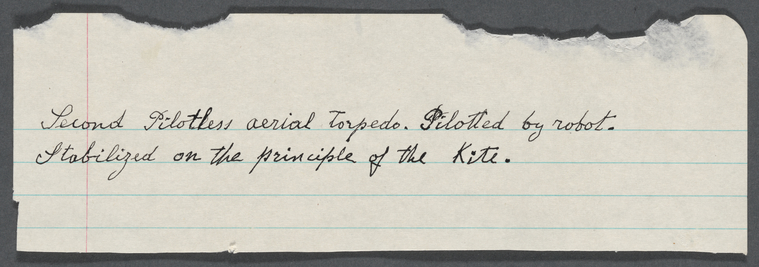 Second Pilotless aerial Torpedo. Pilotted by robot.
Stabilized on the principle of the Kite.